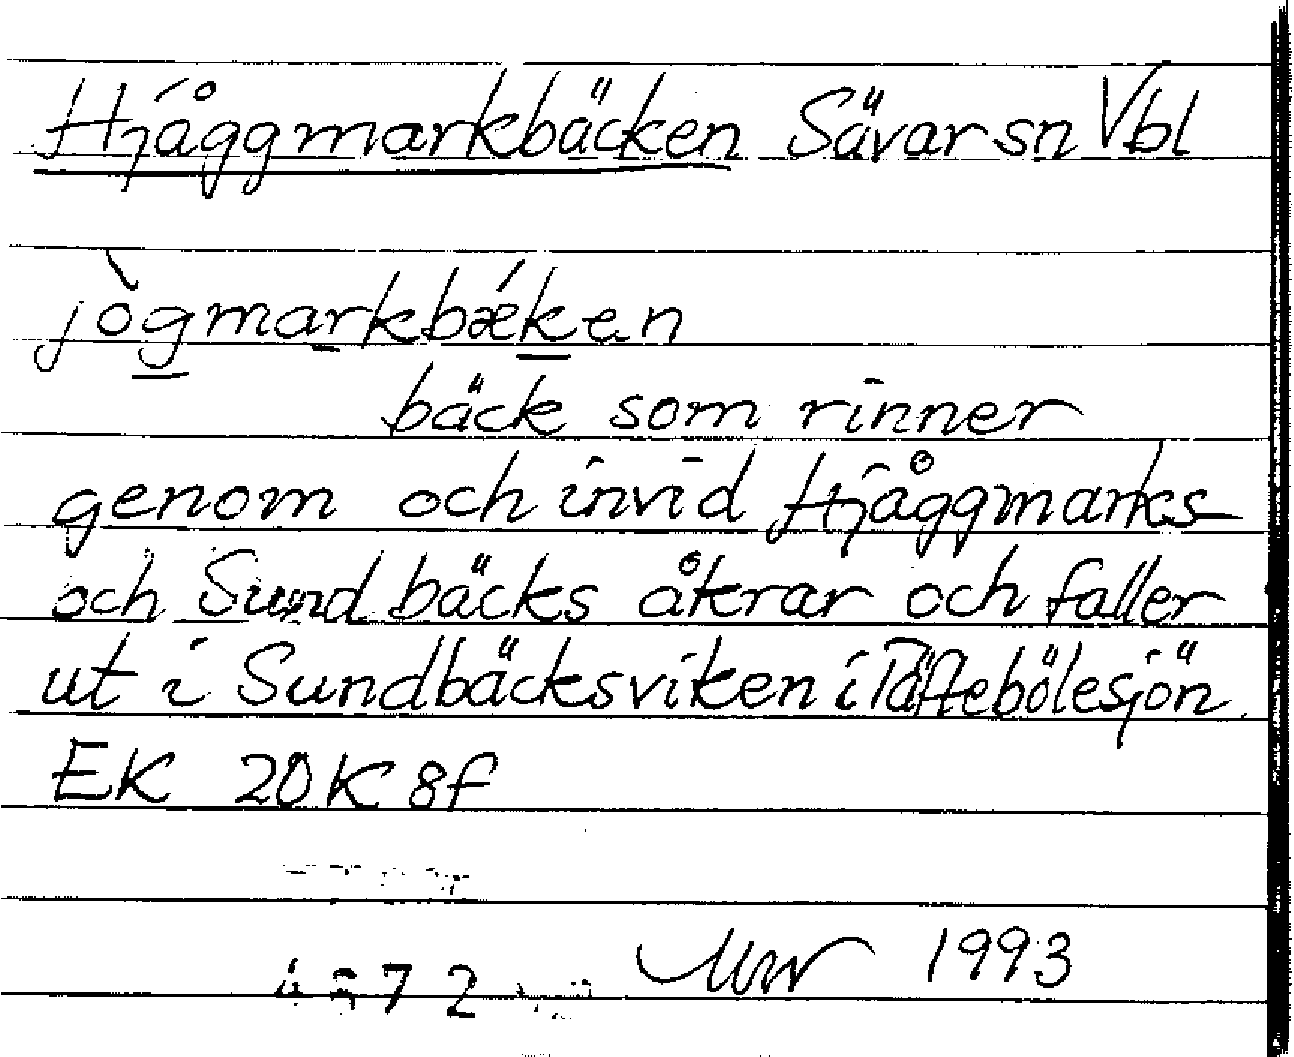 Hjåggmarkbäcken Sävar sn Vbl
jògmarkbǽken
bäck som rinner
genom och invid Hjåggmarks-
och Sundbäcks åkrar och faller
ut i Sundbäcksviken i Täftebölesjön.
EK 20K 8f
1993